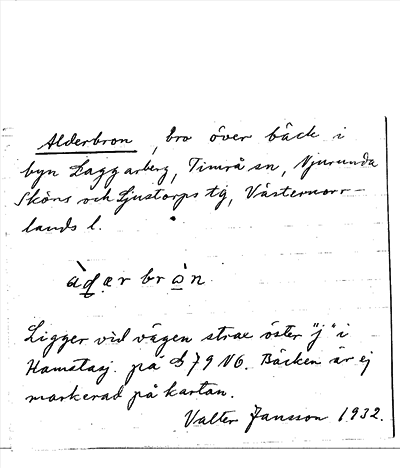 Alderbron, bro över bäck i
byn Laggarberg, Timrå sn, Njurunda
Sköns och Ljustorps tg, Västernorr-
lands l.
àd̲ær brò̲n.
Ligger vid vägen strax öster "j" i
på 579 V6. Bäcken är ej
markerad på kartan.
Valter Jansson 1932.